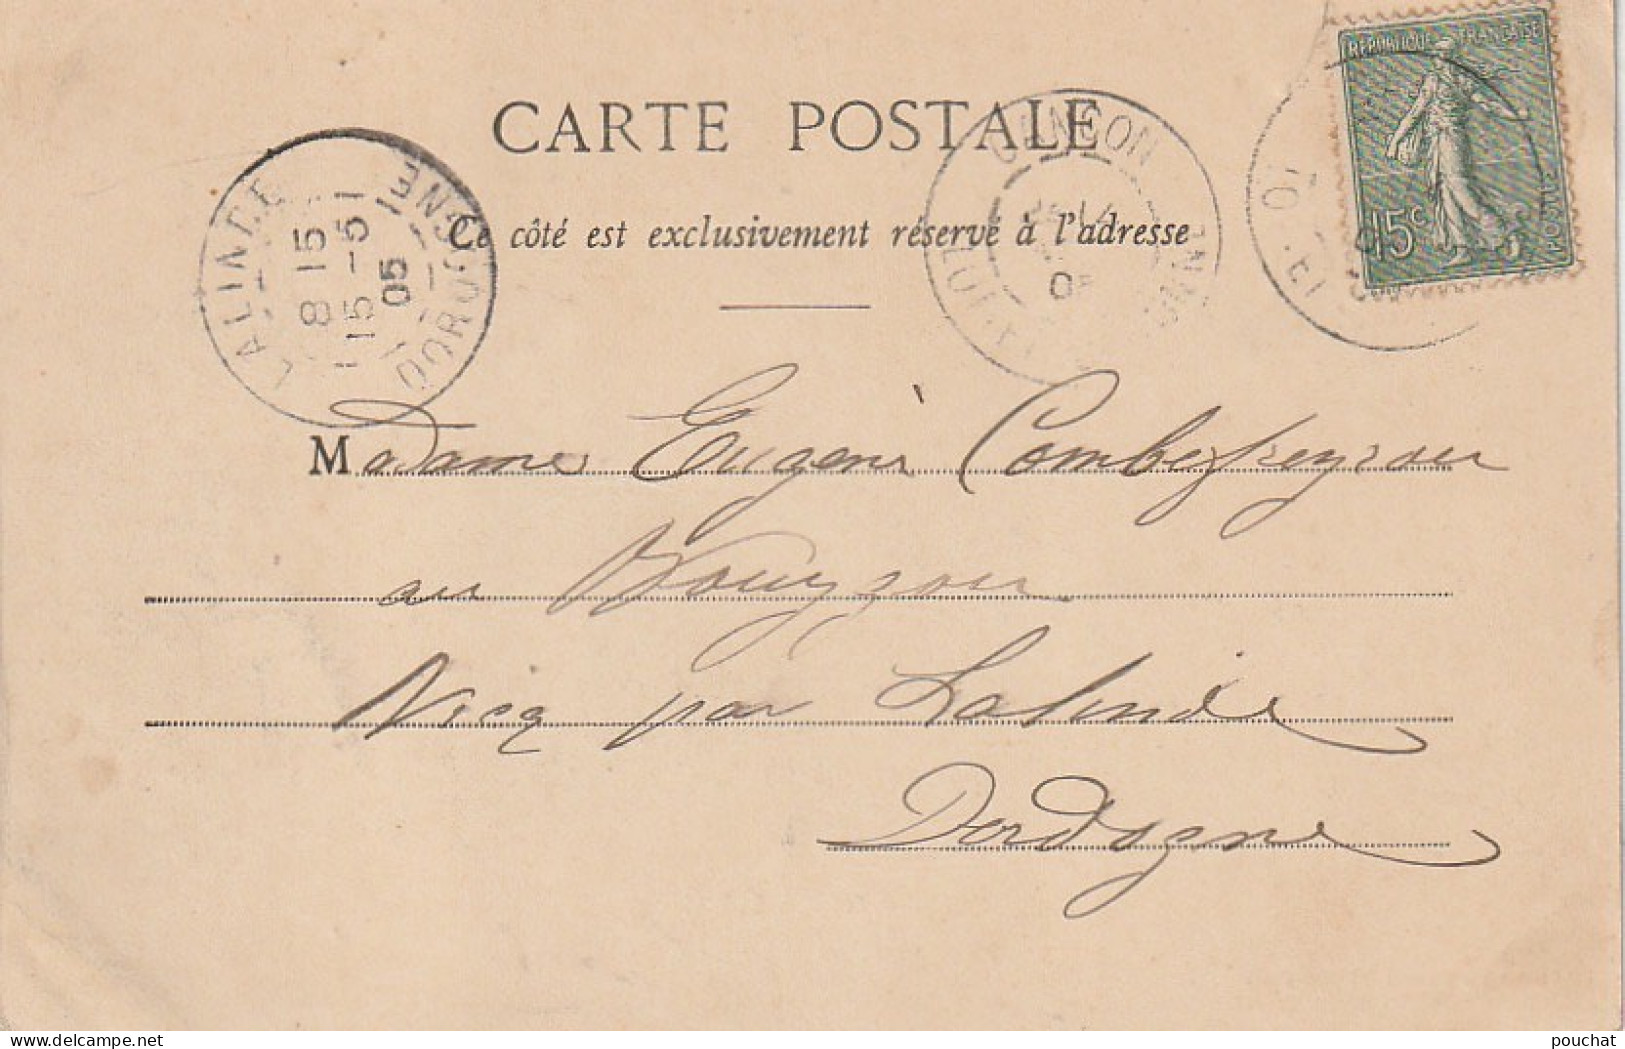 CARTE POSTALE
Ce côté est exclusivement réservé à l'adresse
REPUBLIQUE FRANÇAISE
15c
POSTES
LALINDE
8 15
15 - 5
05
DORDOGNE
Madame Eugénie
au
par Lalinde
Dordogne
www.delcampe.net
pouchat